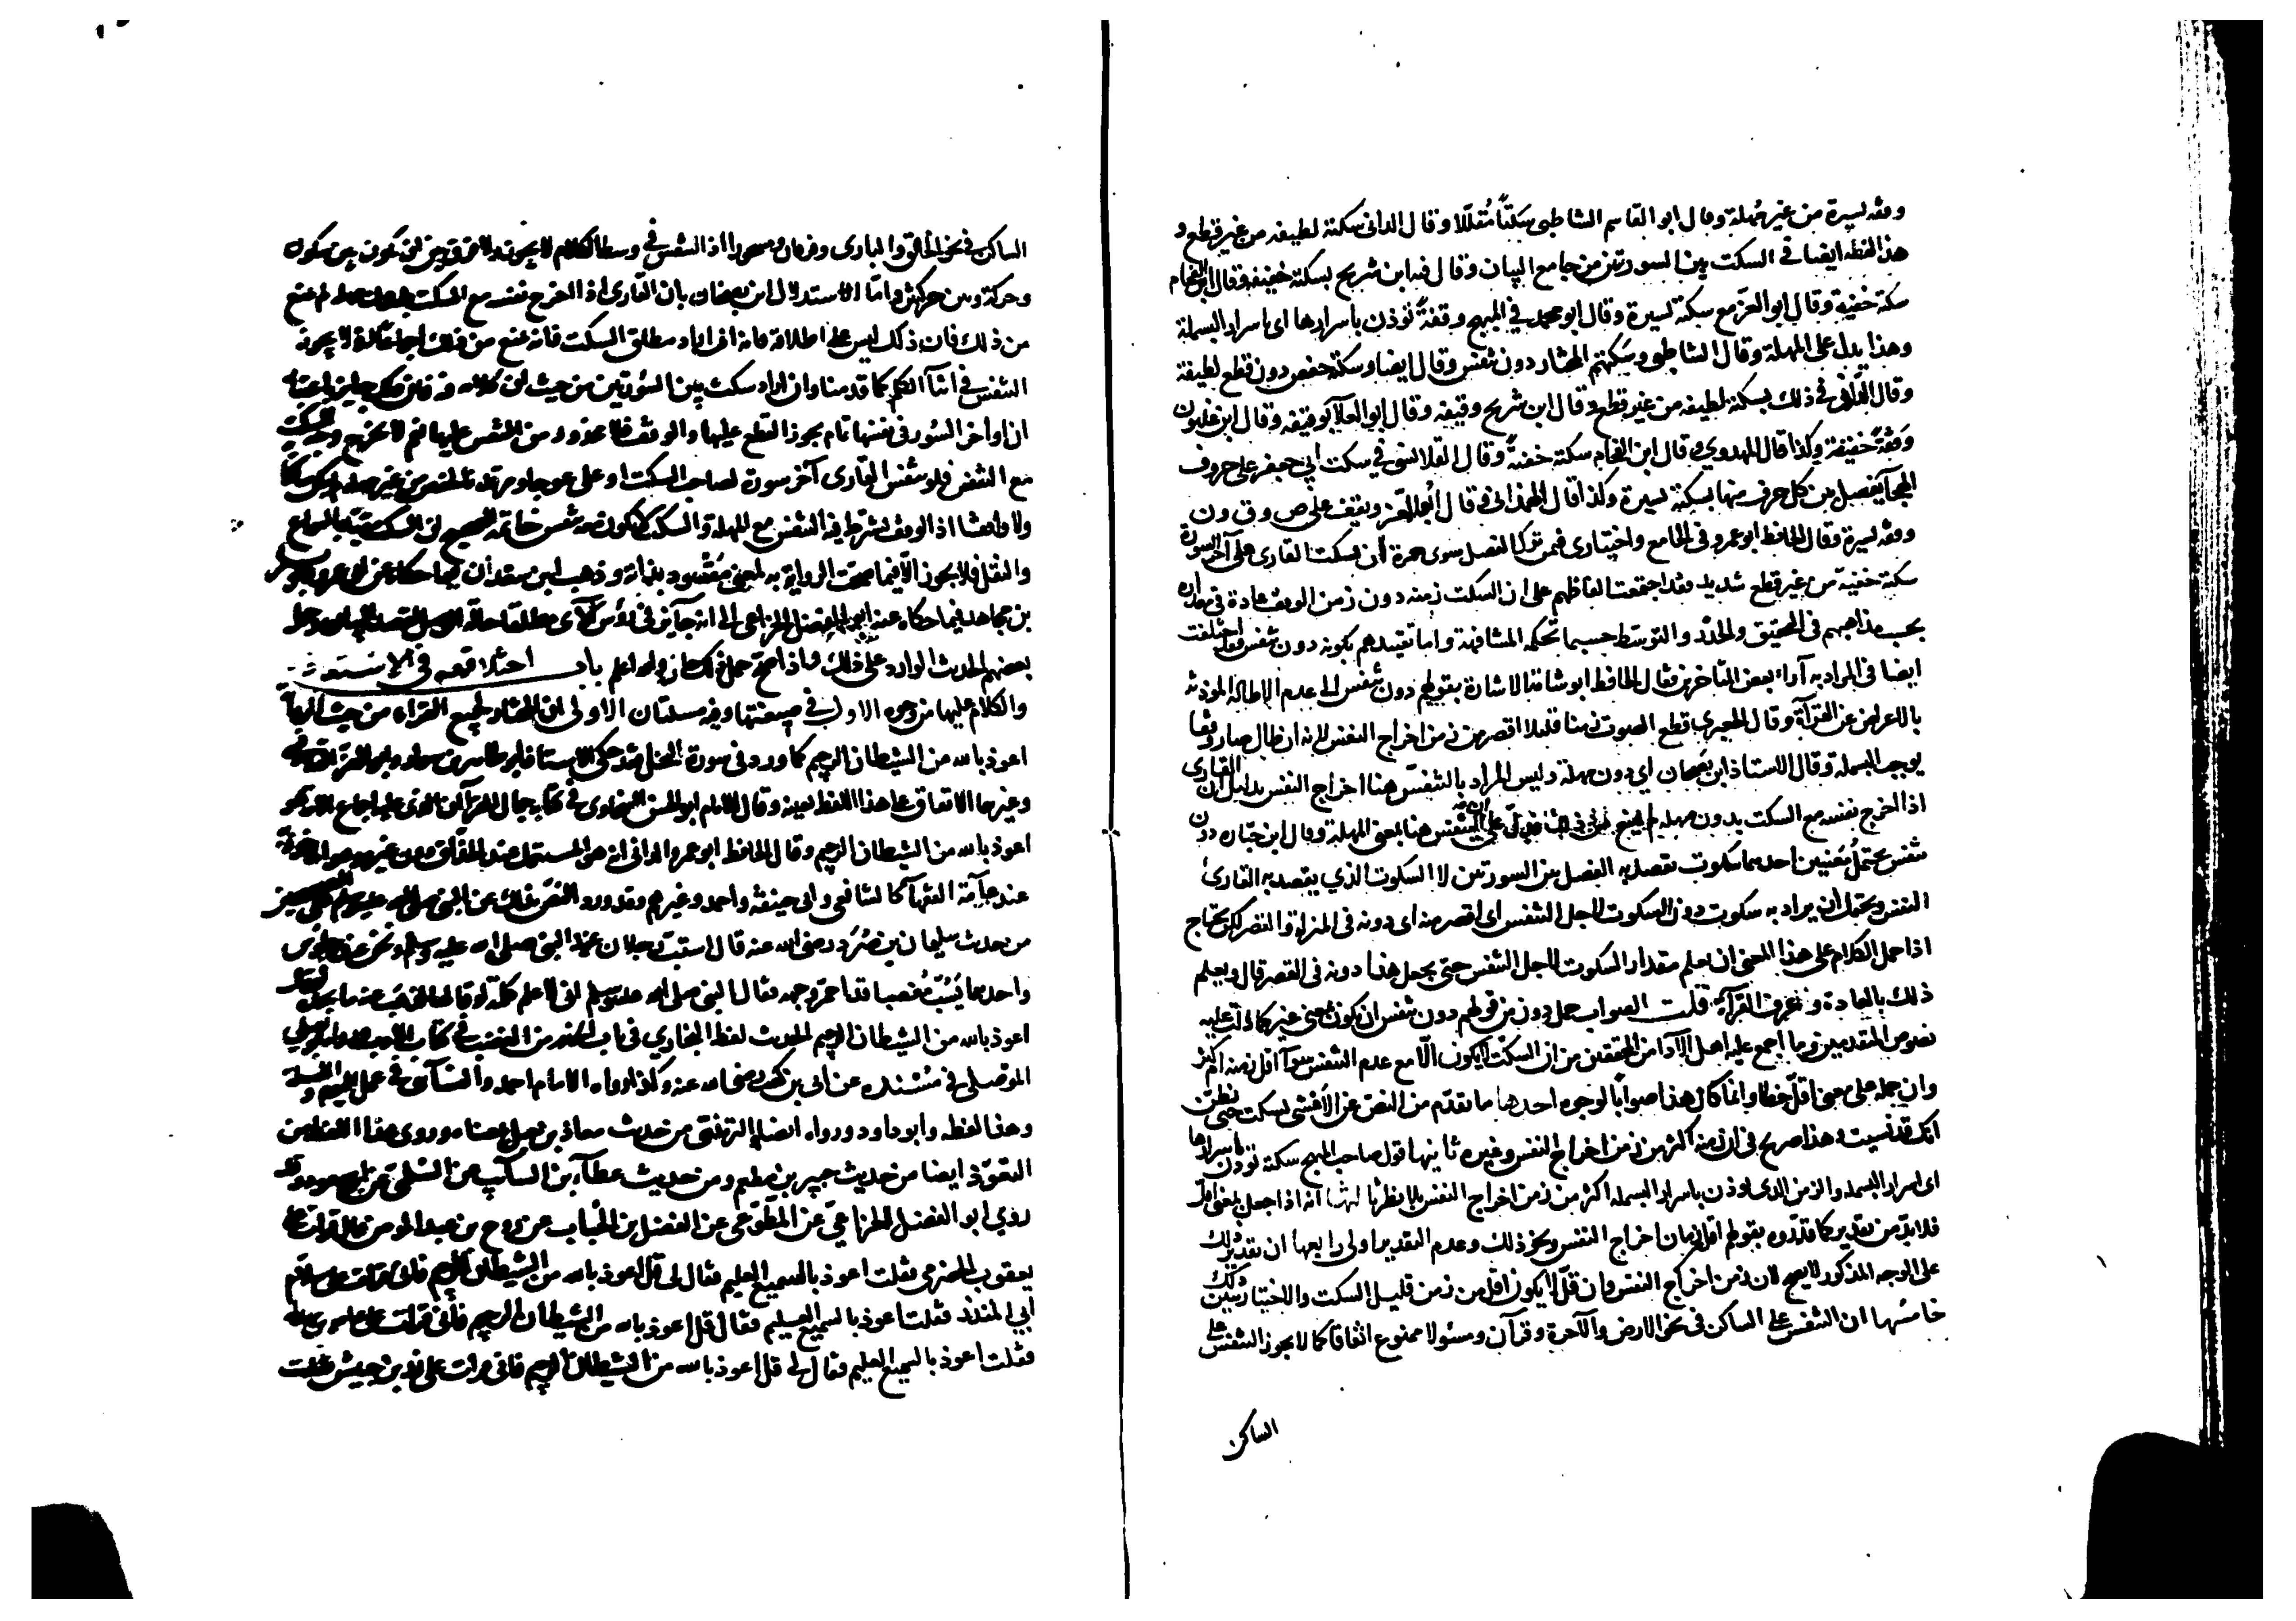 وقفه يسيرة من غير مهلة وقال ابو القاسم الشاطبي سكتًا مُقللا وقال الداني سكتة لطيفه من غير قطع و
هذا لفظه ايضا في السكت بين السورتين من جامع البيان وقال فيه ابن شريح بسكتة خفيفة وقال ابن الفحام
سكتة خفية وقال ابو العز مع سكتة يسيرة وقال ابو محمد في المبهج وقفةً تؤذن باسرارها اى باسرار البسملة
وهذا يدل على المهلة وقال الشاطبي وسكتهم المختار دون تنفس وقال ايضا وسكتة حفص دون قطع لطيفة
وقال الداني في ذلك بسكتة لطيفه من غير قطع وقال ابن شريح وقيفه وقال ابو العلآ بوقيفه وقال ابن غلبون
وَقْفَةً خفيفة وكذا قال المهدوي وقال ابن الفحام سكتة خفية وقال القلانسي في سكت ابي جعفر على حروف
الهجآ يفصل بين كل حرف منها بسكتة يسيرة وكذا قال الهمذاني وقال ابو العز ويقف على ص و ق و ن
وقفه يسيرة وقال الحافظ ابو عمرو في الجامع واختيارى فيمن ترك الفصل سوى حمزة أن يسكت القارى على آخر السورة
سكتة خفيفة من غير قطع شديد فقد اجتمعت الفاظهم على ان السكت زمنه دون زمن الوقف عادة
بحسب مذاهبهم في التحقيق والحدر والتوسط حسبما تحكم المشافهة واما تقييدهم بكونه دون تنفس فقد اختلفت
ايضا في المراد به آراء بعض المتأخرين فقال الحافظ ابو شامة الاشارة بقولهم دون تنفس الى عدم الاطالة الموذنه
بالاعراض عن القرآة وقال الجعبري قطع الصوت زمنا قليلا اقصر من زمن اخراج النفس لانه ان طال صار وقفا
يوجب البسملة وقال الاستاذ ابن بصحان اي دون مهلة وليس المراد بالتنفس هنا اخراج النفس بدليل ان القارى
اذا اخرج نفسه مع السكت بدون مهلة لم يمنع من ذلك فدل على ان التنفس هنا بمعنى المهلة وقال ابن جباره دون
تنفس يحتمل معنيين احدهما سكوت يقصد به الفصل بين السورتين لا السكوت الذي يقصد به القارئ
التنفس ويحتمل ان يراد به سكوت دون السكوت لاجل التنفس اى اقصر منه اى دونه في المنزلة والقصر لكن يحتاج
اذا حمل الكلام على هذا المعنى ان يعلم مقدار السكوت لاجل التنفس حتى يجعل هذا دونه في القصر قال ويعلم
ذلك بالعادة وعرف القرآء قلت الصواب حمل دون من قولهم دون تنفس ان يكون بمعنى غير كما دلت عليه
نصوص المتقدمين وما اجمع عليه اهل الادآ من المحققين من ان السكت لا يكون الا مع عدم التنفس سوآ اقل زمنه ام اكثر
وان حمله على معنى اقل خطا وانما كان هذا صوابا لوجوه احدها ما تقدم من النص عن الاعشى يسكت حتى يظن
انك قد نسيت وهذا صريح في ان زمنه اكثر من زمن اخراج النفس وغيره ثانيها قول صاحب المبهج سكتة تؤذن باسرارها
اى اسرار البسملة والزمن الذي يؤذن باسرار البسملة اكثر من زمن اخراج النفس بلا نظر ثالثها انه اذا جعل بمعنى اقل
فلا بد من تقدير كما قدروه بقولهم اقل زمان اخراج النفس ونحو ذلك وعدم التقدير اولى رابعها ان تقدير ذلك
على الوجه المذكور لا يصح لان زمن اخراج النفس وان قل لا يكون اقل من زمن قليل السكت والاختبار يبين ذلك
خامسها ان التنفس على الساكن في نحو الارض والآخرة وقرآن ومسئولا ممنوع اتفاقا كما لا يجوز التنفس على
الساكن
الساكن في نحو الخالق والبارى وفرقان ومسحورا اذ التنفس في وسط الكلام لا يجوز ولا فرق بين ان يكون بين سكون
وحركة وبين حركتين واما الاستدلال ابن بصحان بان القارى اذا اخرج نفسه مع السكت لم يمنع
من ذلك فان ذلك ليس على اطلاقه فانه ان اراد مطلق السكت فانه يمنع من ذلك اجماعا اذ لا يجوز
التنفس في اثنآ الكلم كما قدمنا وان اراد سكت بين السورتين من حيث
ان اواخر السور في نفسها تام يجوز القطع عليها والوقف فلا محذور من التنفس عليها نعم لا يخرج وجه السكت
مع التنفس فلو تنفس القارى آخر سورة لصاحب السكت او على عوجا ومرقدنا لحفص من غير مهلة لم يكن ساكتا
ولا واقفا اذ الوقف يشترط فيه التنفس مع المهلة والسكت لا يكون معه تنفس خاتمه الصحيح ان السكت مقيد بالسماع
والنقل فلا يجوز الا فيما صحت الرواية به لمعنى مقصود بذاته وذهب ابن سعدان فيما حكاه عن ابي عمرو وابو بكر
بن مجاهد فيما حكاه عنه ابو الفضل الخزاعي الى انه جآئز في رؤس الآى مطلقا حالة الوصل لقصد البيان وحمل
بعضهم الحديث الوارد على ذلك واذا صح حمل ذلك جاز والله اعلم باب اختلافهم في الاستعاذة
والكلام عليها من وجوه الاول في صيغتها وفيه مسئلتان الاولى ان المختار لجميع القراء من حيث الرواية
اعوذ بالله من الشيطان الرجيم كما ورد في سورة النحل فقد حكى الاستاذ ابو طاهر بن سوار وابو العز القلانسي
وغيرهما الاتفاق على هذا اللفظ بعينه وقال الامام ابو الحسن السخاوى في كتابه جمال القرآ ان الذي عليه اجماع الامة هو
اعوذ بالله من الشيطان الرجيم وقال الحافظ ابو عمرو الداني انه هو المستعمل عند الحذاق دون غيره وهو الماخوذ به
عند عآمة الفقهآ كالشافعي وابي حنيفه واحمد وغيرهم وقد ورد النص بذلك عن النبي صلى الله عليه وسلم ففي الصحيحين
من حديث سليمان بن صُرَد رضي الله عنه قال استبّ رجلان عند النبي صلى الله عليه وسلم ونحن عنده جلوس
واحدهما يسُبّ مُغضبا قد احمر وجهه فقال النبي صلى الله عليه وسلم اني لاعلم كلمة لو قالها لذهب عنه ما يجد لو قال
اعوذ بالله من الشيطان الرجيم الحديث لفظ البخاري في باب الحذر من الغضب في كتاب الادب
الموصلي في مسنده عن ابي بن كعب رضي الله عنه وكذا رواه الامام احمد والنسآئي في عمل اليوم والليلة
وهذا لفظه وابو داود ورواه ايضا الترمذي من حديث معاذ بن جبل بمعناه وروى هذا اللفظ من
التعوّذ ايضا من حديث جبير بن مطعم ومن حديث عطآء بن السآئب عن السلمي عن ابن مسعود وقد
روي ابو الفضل الخزاعي عن المطوعي عن الفضل بن الحباب عن روح بن عبد المومن قال قرات على
يعقوب الحضرمي فقلت اعوذ بالسميع العليم فقال لى قل اعوذ بالله من الشيطان الرجيم فاني قرات على سلام
ابي المنذر فقلت اعوذ بالسميع العليم فقال قل اعوذ بالله من الشيطان الرجيم فاني قرات على عاصم بن بهدلة
فقلت اعوذ بالسميع العليم فقال لي قل اعوذ بالله من الشيطان الرجيم فاني قرات على زر بن حبيش فقلت